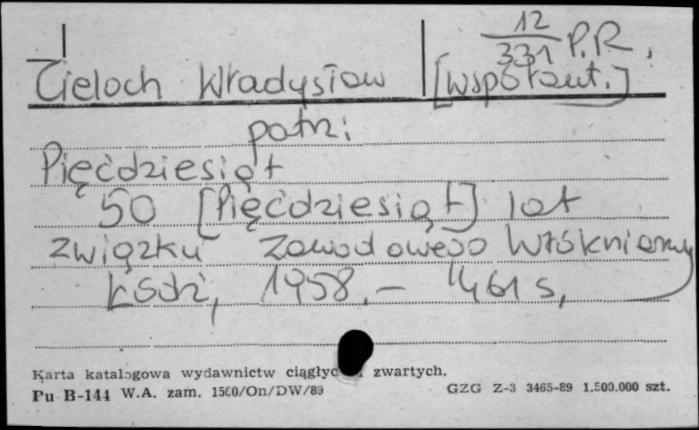 12/331 P.R.
Cieloch Władysław [współaut.]
patrz:
Pięćdziesiąt
50 [Pięćdziesiąt] lat
związku zawodowego Włókniarzy
Łódź, 1958, - 461 s,
Karta katalogowa wydawnictw ciągłyc zwartych.
Pu B-144 W.A. zam. 1580/On/DW/89 GZG Z-3 3465-89 1.500.000 szt.